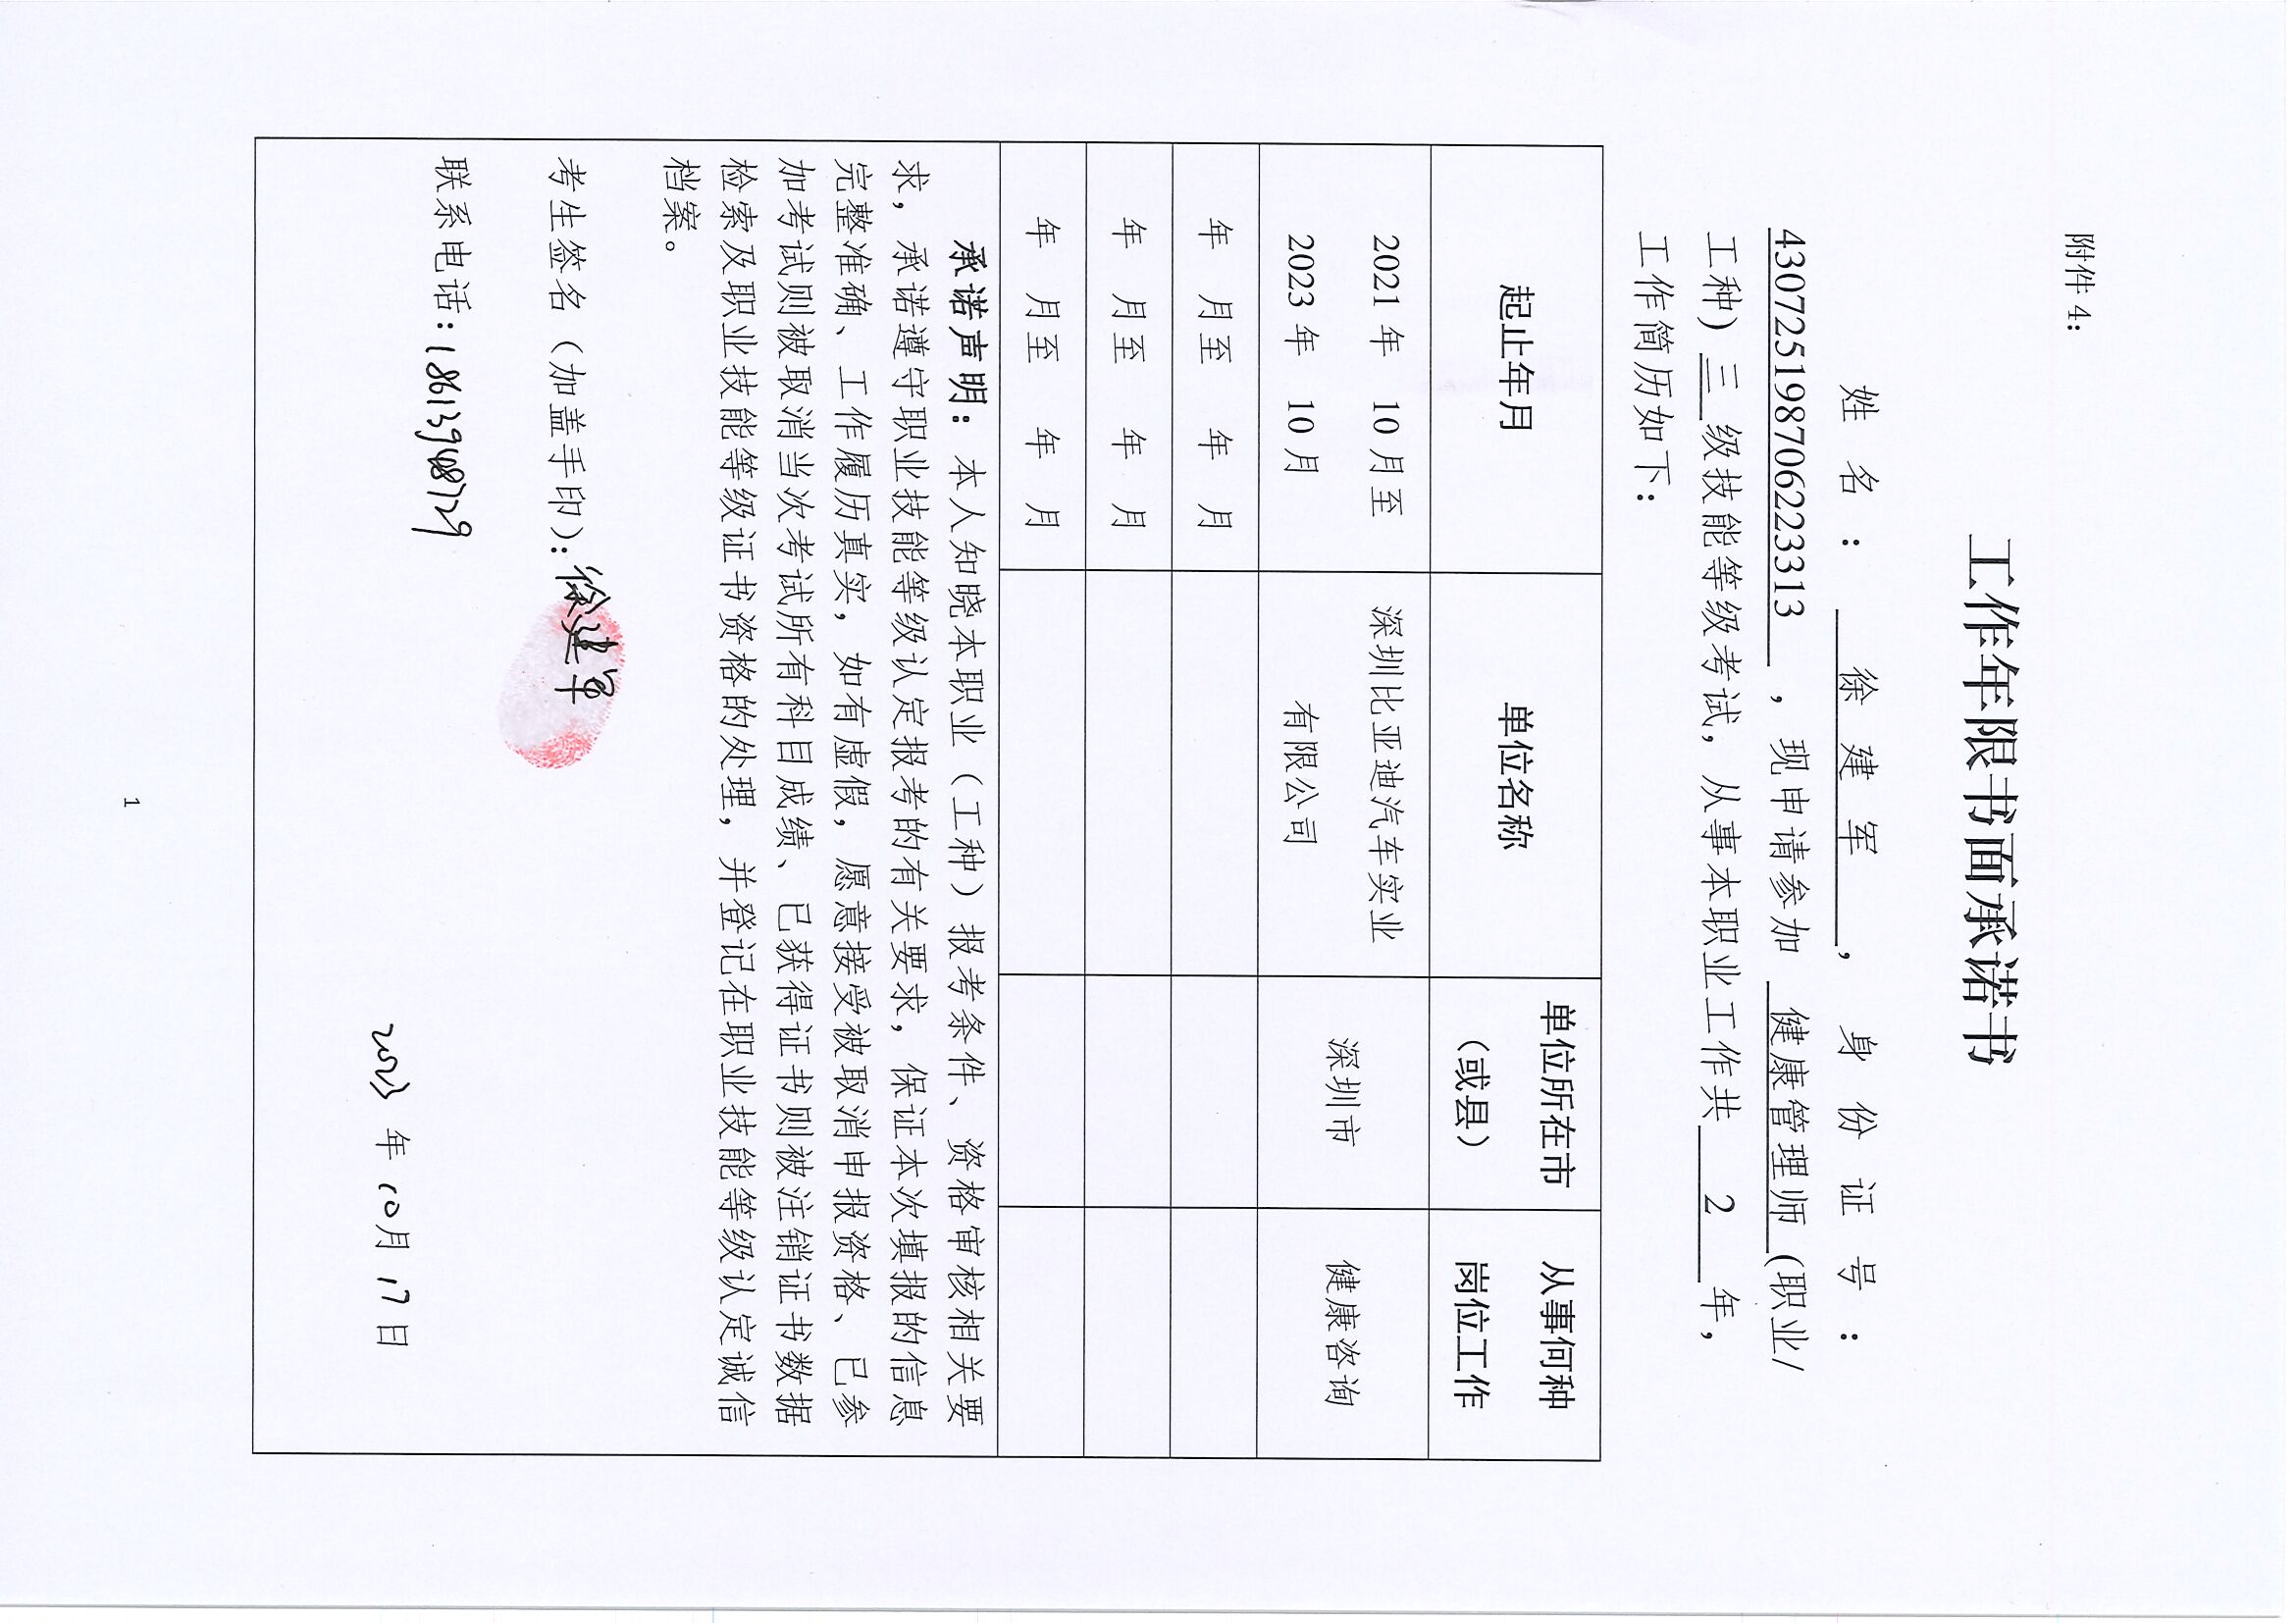 附件 4:
工作年限书面承诺书
姓名： 徐建军 ，身份证号：
430725198706223313 ，现申请参加 健康管理师 (职业/
工种) 三 级技能等级考试，从事本职业工作共 2 年，
工作简历如下：
起止年月 单位名称 单位所在市（或县） 从事何种岗位工作
2021 年 10 月至 2023 年 10 月 深圳比亚迪汽车实业有限公司 深圳市 健康咨询
年 月至 年 月
年 月至 年 月
年 月至 年 月
承诺声明：本人知晓本职业（工种）报考条件、资格审核相关要
求，承诺遵守职业技能等级认定报考的有关要求，保证本次填报的信息
完整准确、工作履历真实，如有虚假，愿意接受被取消申报资格、已参
加考试则被取消当次考试所有科目成绩、已获得证书则被注销证书数据
检索及职业技能等级证书资格的处理，并登记在职业技能等级认定诚信
档案。
考生签名（加盖手印）：徐建军
联系电话：18613948729
2023 年 10 月 17 日
1